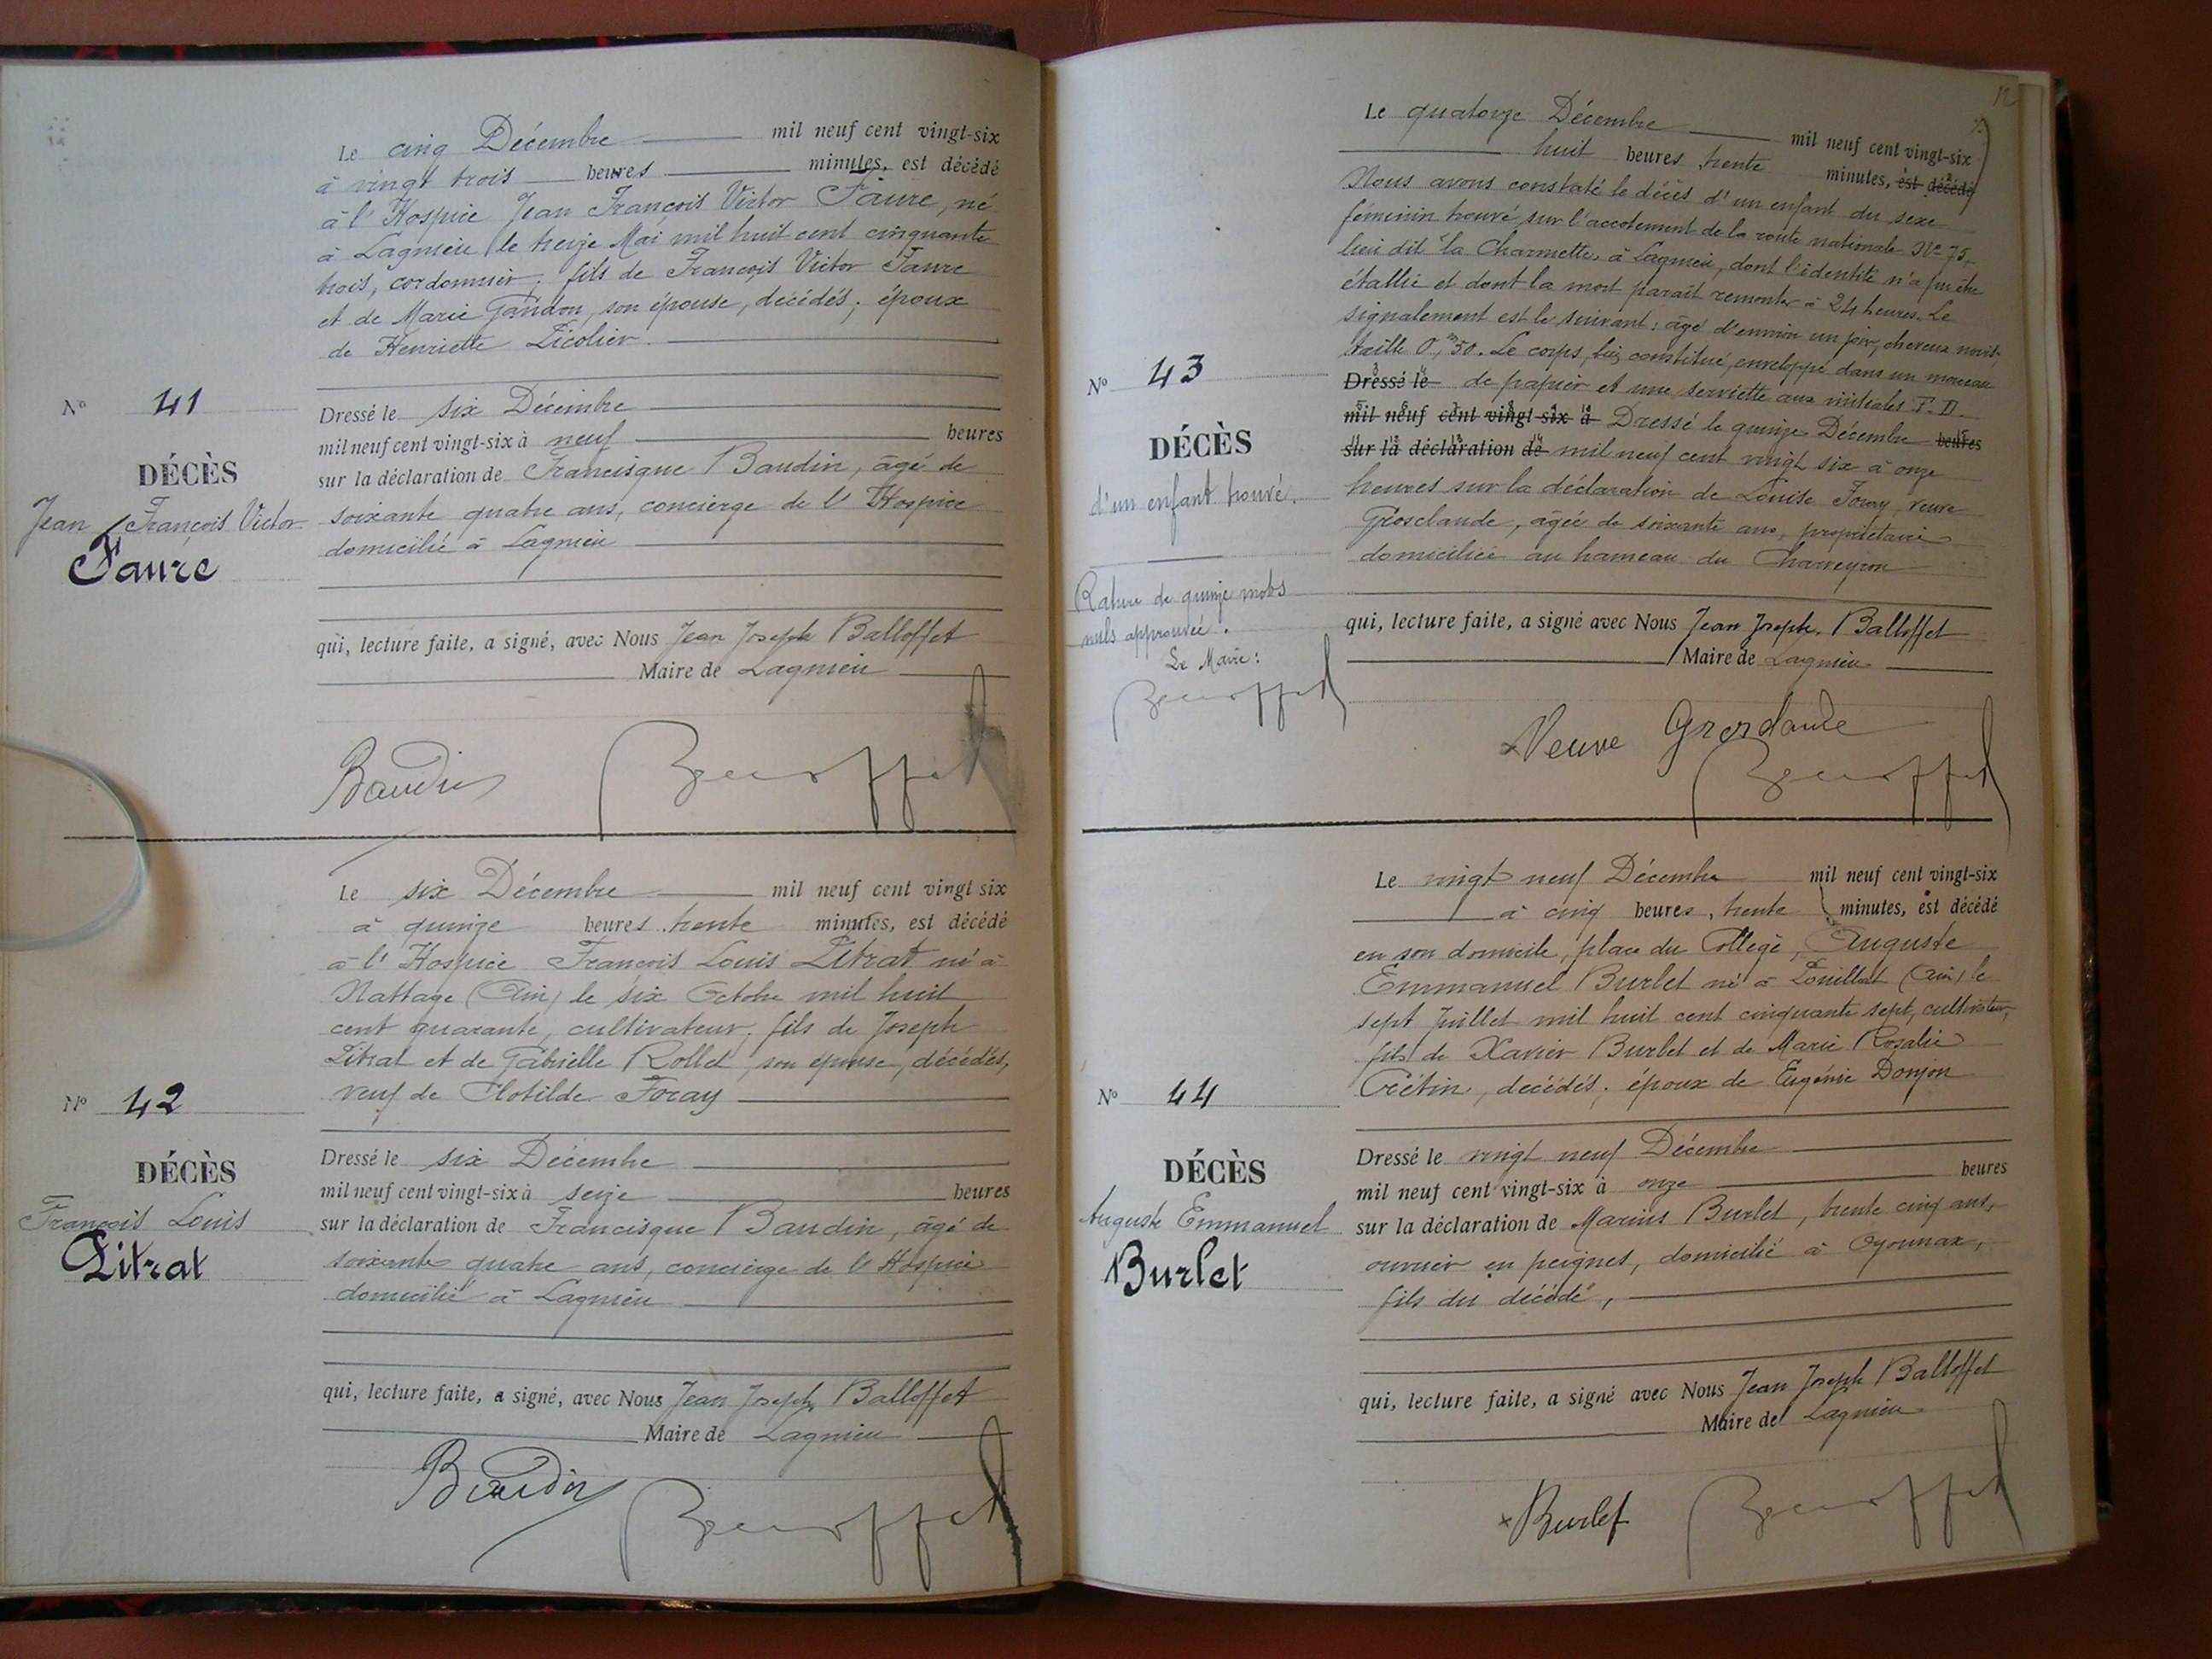 Le cinq Décembre mil neuf cent vingt-six
à vingt trois heures minutes, est décédé
à l'Hospice Jean François Victor Faure, né
à Lagnieu le treize Mai mil huit cent cinquante
trois, cordonnier, fils de François Victor Faure
et de Marie Gandon, son épouse, décédés; époux
de Henriette
N° 41
DÉCÈS
Jean François Victor
Faure
Dressé le six Décembre
mil neuf cent vingt-six à neuf heures
sur la déclaration de Francisque Baudin, âgé de
soixante quatre ans, concierge de l'Hospice
domicilié à Lagnieu
qui, lecture faite, a signé, avec Nous Jean Joseph Balloffet
Maire de Lagnieu
Baudin Balloffet
Le six Décembre mil neuf cent vingt six
à quinze heures trente minutes, est décédé
à l'Hospice François Louis Litrat né à
Nattage (Ain) le six Octobre mil huit
cent quarante, cultivateur, fils de Joseph
Litrat et de Gabrielle Rollet, son épouse, décédés,
veuf de Clotilde Foray
N° 42
DÉCÈS
François Louis
Litrat
Dressé le six Décembre
mil neuf cent vingt-six à seize heures
sur la déclaration de Francisque Baudin, âgé de
soixante quatre ans, concierge de l'Hospice
domicilié à Lagnieu
qui, lecture faite, a signé, avec Nous Jean Joseph Balloffet
Maire de Lagnieu
Baudin Balloffet
12
Le quatorze Décembre mil neuf cent vingt-six
huit heures trente minutes, est décédé
Nous avons constaté le décès d'un enfant du sexe
féminin trouvé sur l'accotement de la route nationale N° 75,
lieu dit la Charmette, à Lagnieu, dont l'identité n'a pu être
établie et dont la mort paraît remonter à 24 heures. Le
signalement est le suivant: âgé d'environ un jour, cheveux noirs,
taille 0,m50. Le corps, bien constitué, enveloppé dans un morceau
Dressé le de papier et une serviette aux initiales F. D.
mil neuf cent vingt-six à Dressé le quinze Décembre heures
sur la déclaration de mil neuf cent vingt six à onze
heures sur la déclaration de Louise Foray veuve
Grosclaude, âgée de soixante ans, propriétaire
domiciliée au hameau du Charveyron
N° 43
DÉCÈS
d'un enfant trouvé.
Rature de quinze mots
nuls approuvée.
Le Maire:
Balloffet
qui, lecture faite, a signé avec Nous Jean Joseph Balloffet
Maire de Lagnieu
Veuve Grosclaude
Balloffet
Le vingt neuf Décembre mil neuf cent vingt-six
à cinq heures, trente minutes, est décédé
en son domicile, place du Collège, Auguste
Emmanuel Burlet né à Pouillat (Ain) le
sept Juillet mil huit cent cinquante sept, cultivateur,
fils de Xavier Burlet et de Marie Rosalie
Crétin, décédés; époux de Eugénie Donjon
N° 44
DÉCÈS
Auguste Emmanuel
Burlet
Dressé le vingt neuf Décembre
mil neuf cent vingt-six à onze heures
sur la déclaration de Marius Burlet, trente cinq ans,
ouvrier en peignes, domicilié à Oyonnax,
fils du décédé,
qui, lecture faite, a signé avec Nous Jean Joseph Balloffet
Maire de Lagnieu
Burlet Balloffet